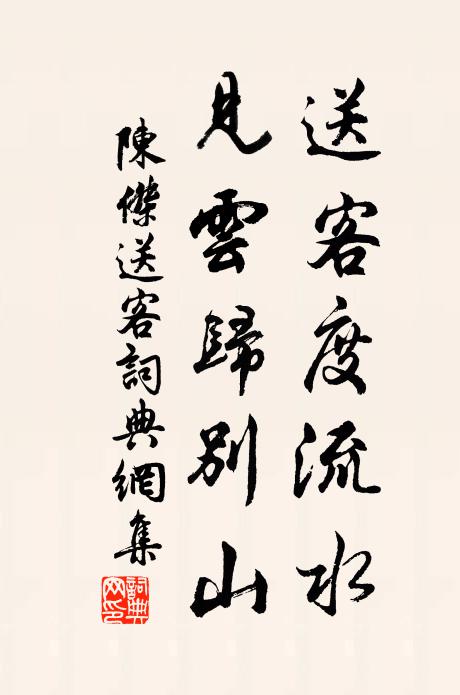 送客度流水
見雲歸別山
陳傑送客詞典網集
詞典網印